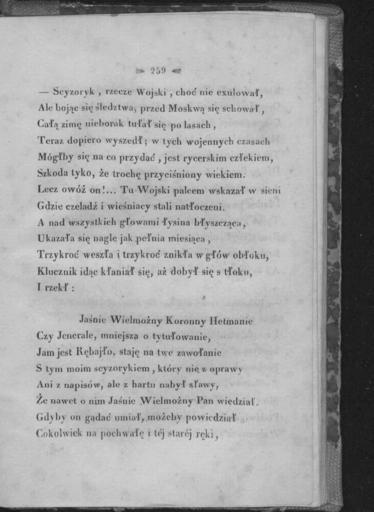 259
— Scyzoryk , rzecze Wojski , choć nie exulował,
Ale bojąc się śledztwa, przed Moskwą się schował,
Całą zimę nieborak tułał się po lasach,
Teraz dopiero wyszedł; w tych wojennych czasach
Mógłby się na co przydać , jest rycerskim człekiem,
Szkoda tyko, że trochę przyciśniony wiekiem.
Lecz owóż on!... Tu Wojski palcem wskazał w sieni
Gdzie czeladź i wieśniacy stali natłoczeni.
A nad wszystkich głowami łysina błyszcząca,
Ukazała się nagle jak pełnia miesiąca ,
Trzykroć weszła i trzykroć znikła w głów obłoku,
Klucznik idąc kłaniał się, aż dobył się s tłoku,
I rzekł :
Jaśnie Wielmożny Koronny Hetmanie
Czy Jenerale, mniejsza o tytułowanie,
Jam jest Rębajło, staję na twe zawołanie
S tym moim scyzorykiem , który nie z oprawy
Ani z napisów, ale z hartu nabył sławy,
Że nawet o nim Jaśnie Wielmożny Pan wiedział.
Gdyby on gadać umiał, możeby powiedział
Cokolwiek na pochwałę i téj staréj ręki,